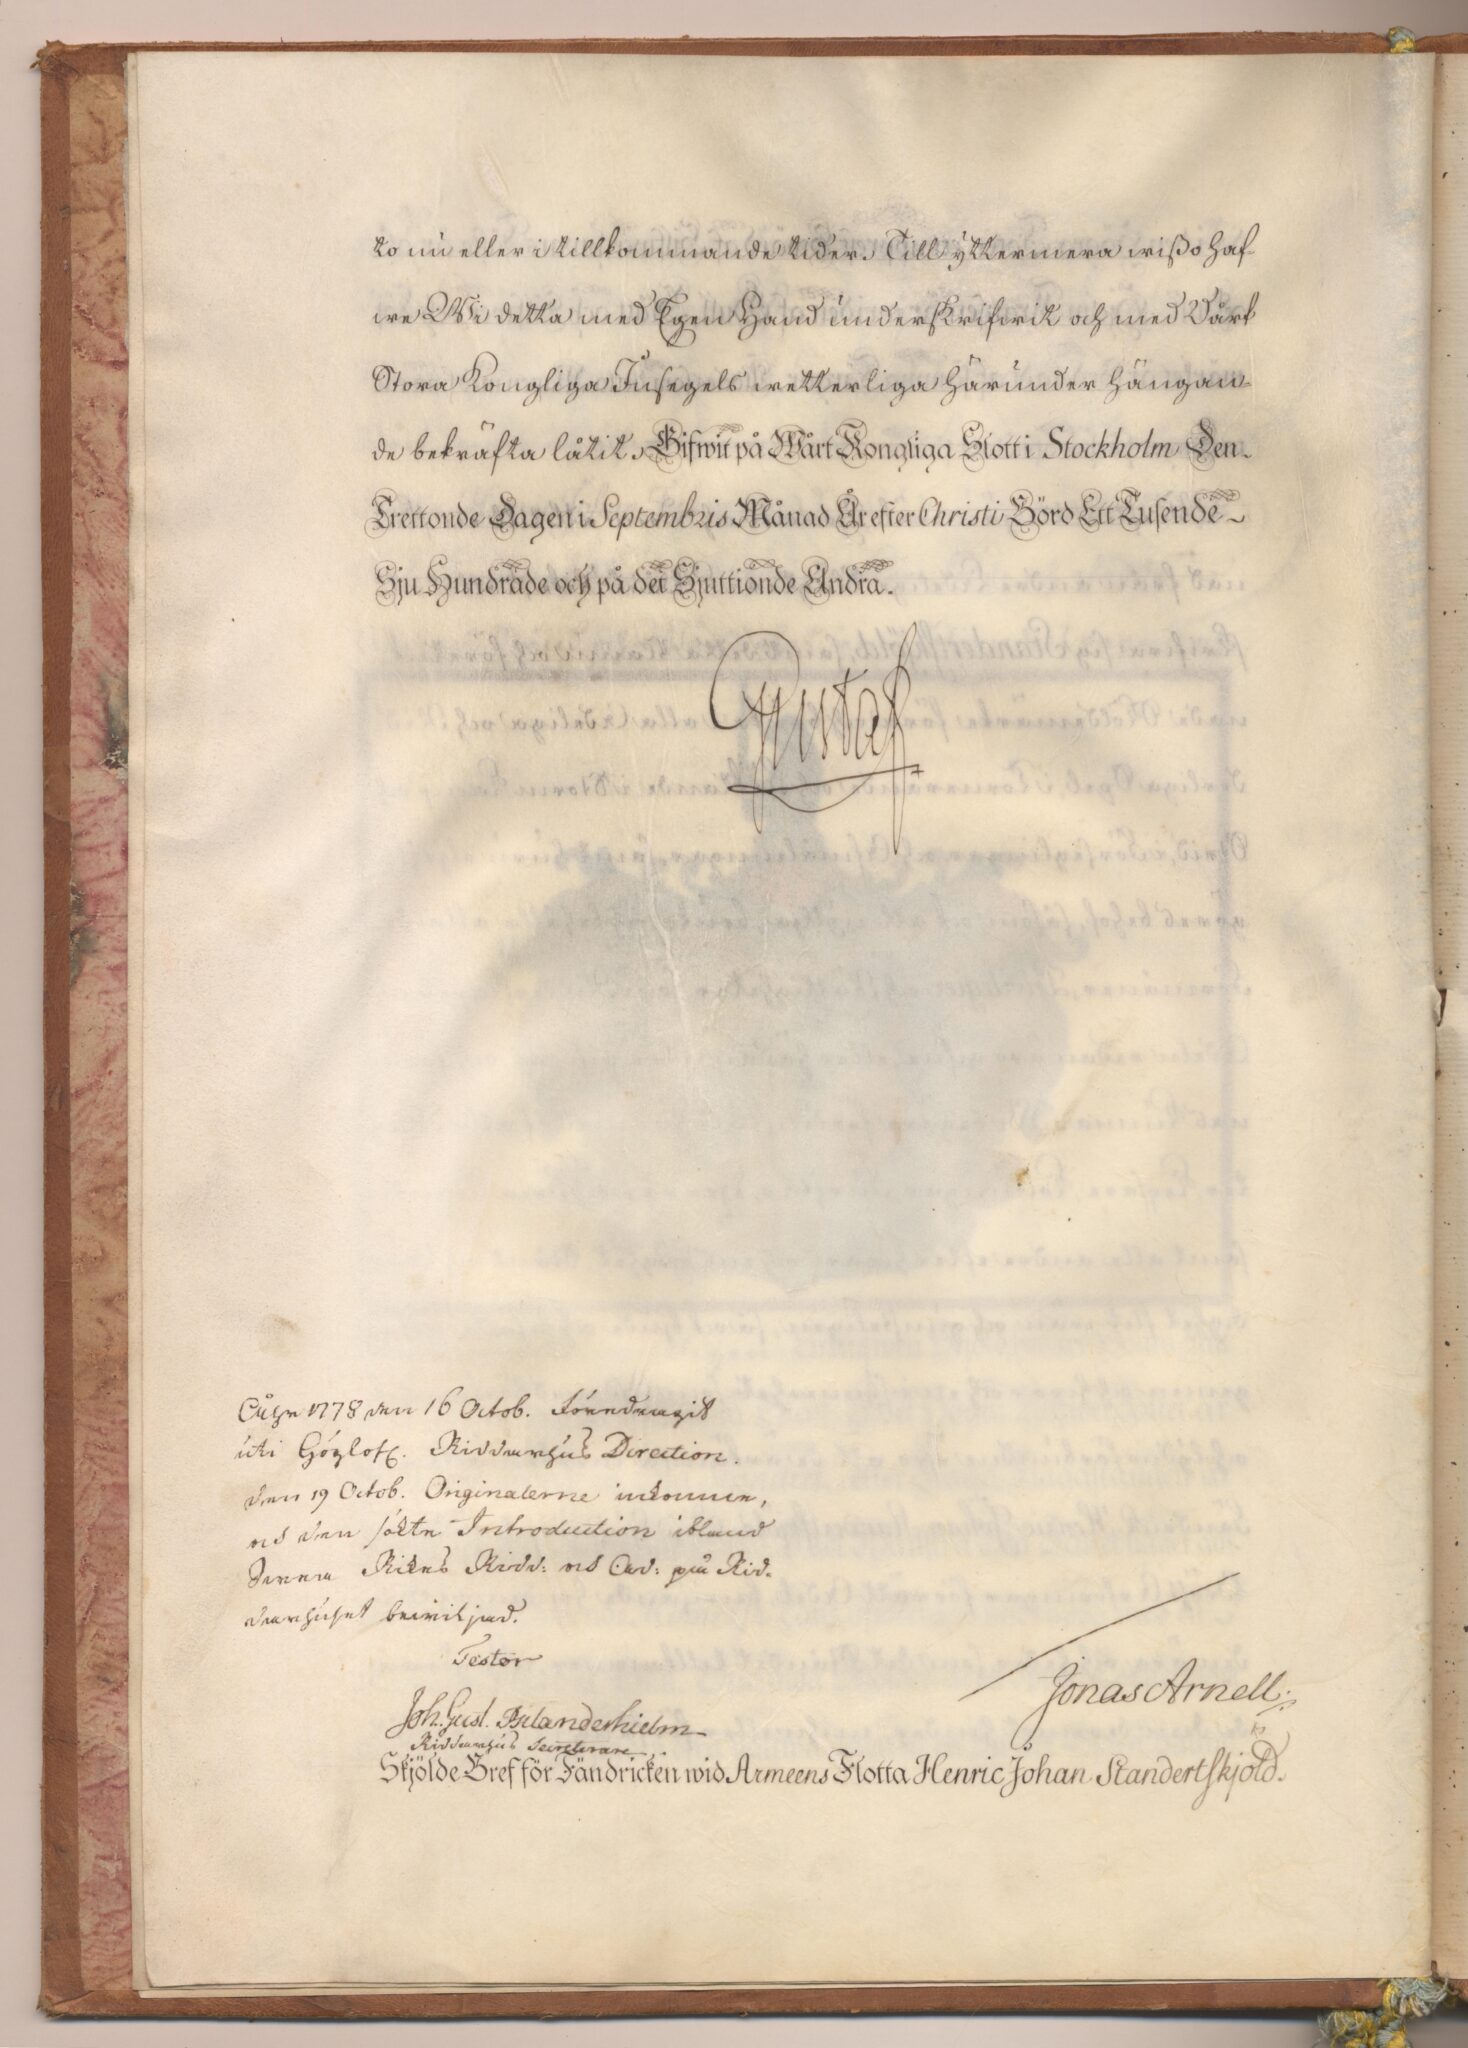 te nu eller i tillkommande tider. Till yttermera wißo haf-
we Wi detta med Egen Hand underskrifwit och med Vårt
Stora Kongliga Insegels wetterliga härunder hängan-
de bekräfta låtit. Gifwit på Wårt Kongliga Slott i Stockholm Den
Trettonde Dagen i Septembris Månad År efter Christi Börd Ett Tusende
Sju Hundrade och på det Sjuttionde Andra.
Gustaf
1778 den 16 Octob. föredragit
uti Höglofl. Riddarhus Direction.
den 19 Octob. Originalerne inkomne,
och den sökte Introduction ibland
Swea Rikes Ridd: och Ad: på Rid-
darhuset bewiljad.
Testor
Joh. Gust.
Riddarhus Secreterare
Jonas Arnell
Skjölde Bref för Fändricken wid Armeens Flotta Henric Johan Standertskjöld.